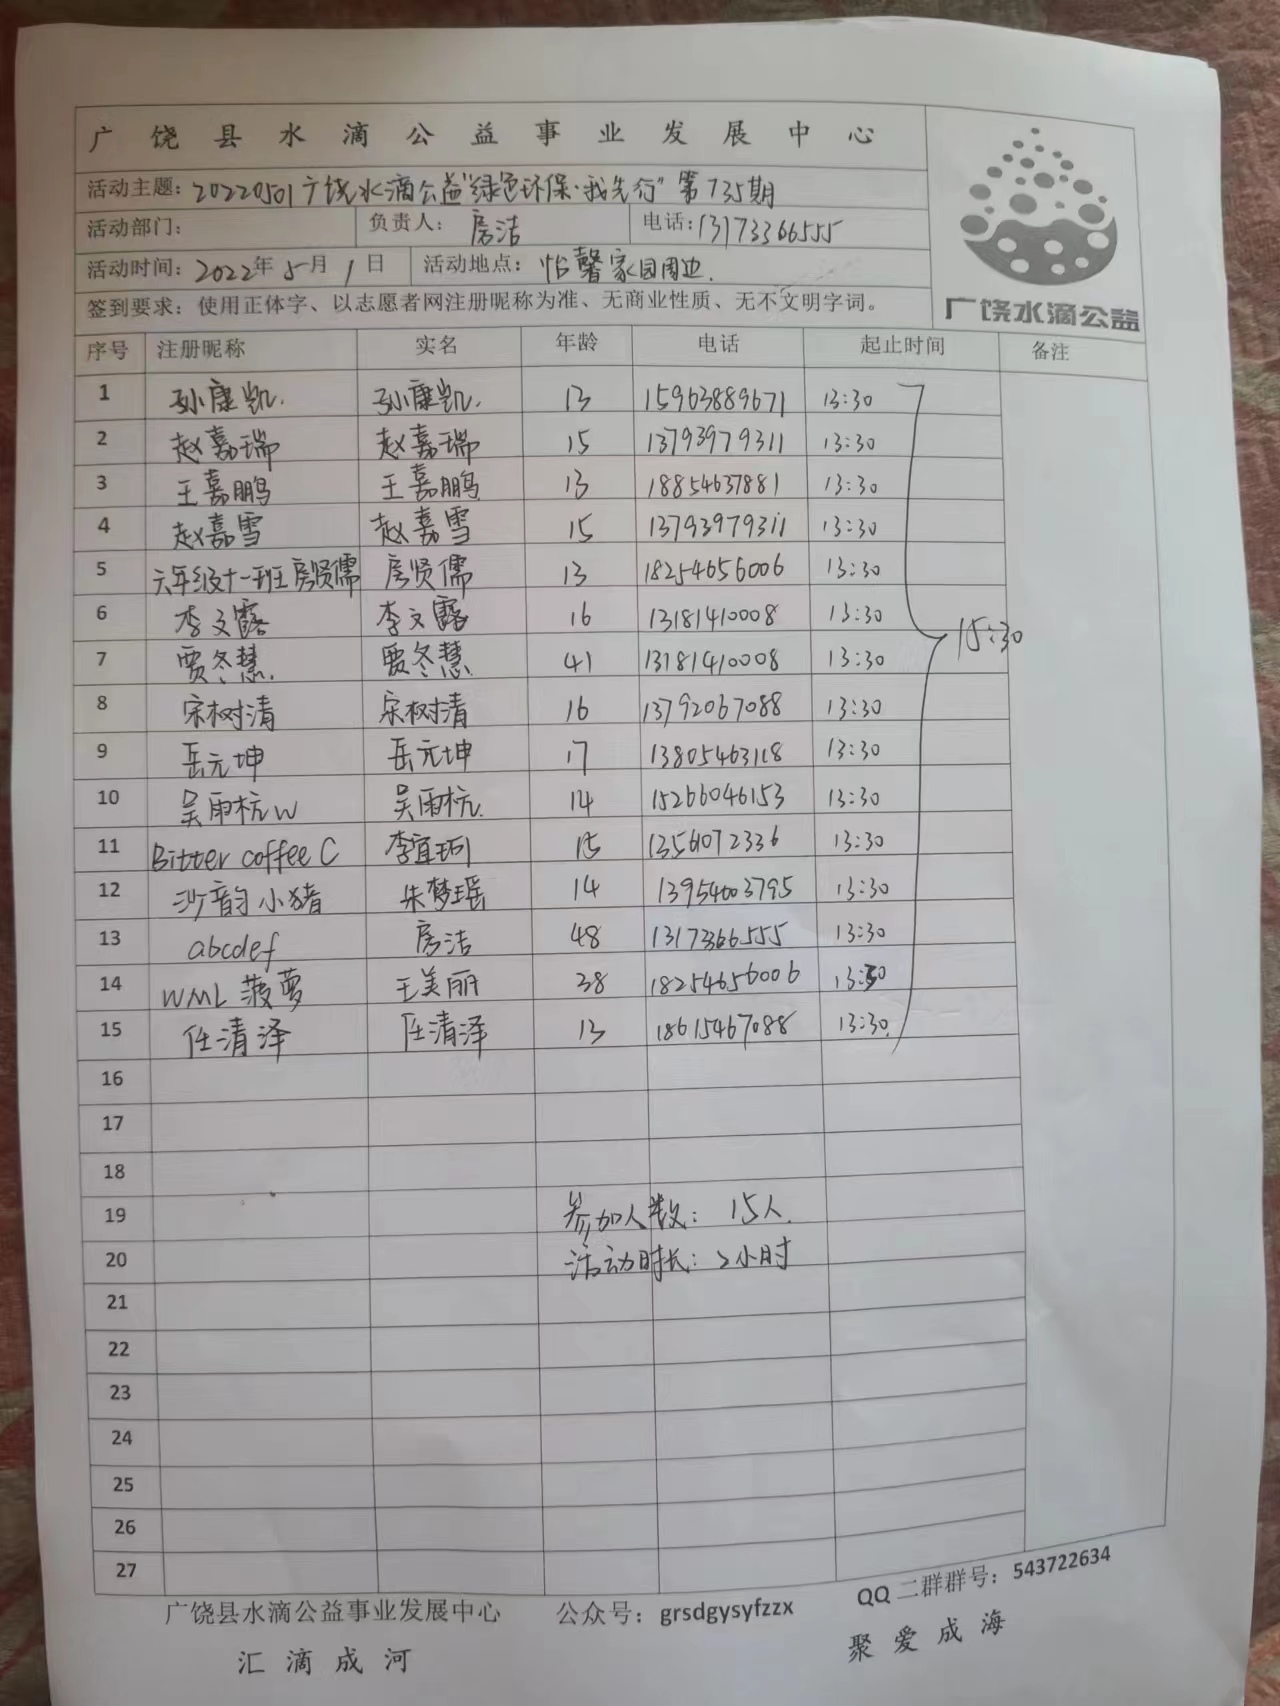 广饶县水滴公益事业发展中心
活动主题：20220501广饶水滴公益"绿色环保·我先行"第735期
活动部门： 负责人：房洁 电话：13173366555
活动时间：2022年5月1日 活动地点：怡馨家园周边.
签到要求：使用正体字、以志愿者网注册昵称为准、无商业性质、无不文明字词。
广饶水滴公益
序号 注册昵称 实名 年龄 电话 起止时间 备注
1 孙康凯. 孙康凯. 13 15963889671 13:30
2 赵嘉瑞 赵嘉瑞 15 13793979311 13:30
3 王嘉鹏 王嘉鹏 13 18854637881 13:30
4 赵嘉雪 赵嘉雪 15 13793979311 13:30
5 六年级十一班房贤儒 房贤儒 13 18254656006 13:30
6 李文露 李文露 16 13181410008 13:30
15:30
7 贾冬慧. 贾冬慧. 41 13181410008 13:30
8 宋树清 宋树清 16 13792067088 13:30
9 岳元坤 岳元坤 17 13805463118 13:30
10 吴雨杭w 吴雨杭. 14 15266046153 13:30
11 Bitter coffee C 李宜珂 15 13561072336 13:30
12 沙韵小猪 朱梦瑶 14 13954003795 13:30
13 abcdef 房洁 48 13173366555 13:30
14 WML菠萝 王美丽 38 18254656006 13:30
15 任清泽 任清泽 13 18615467088 13:30
16
17
18
19 参加人数：15人.
20 活动时长：2小时
21
22
23
24
25
26
27
广饶县水滴公益事业发展中心 公众号：grsdgysyfzzx QQ二群群号：543722634
汇滴成河 聚爱成海